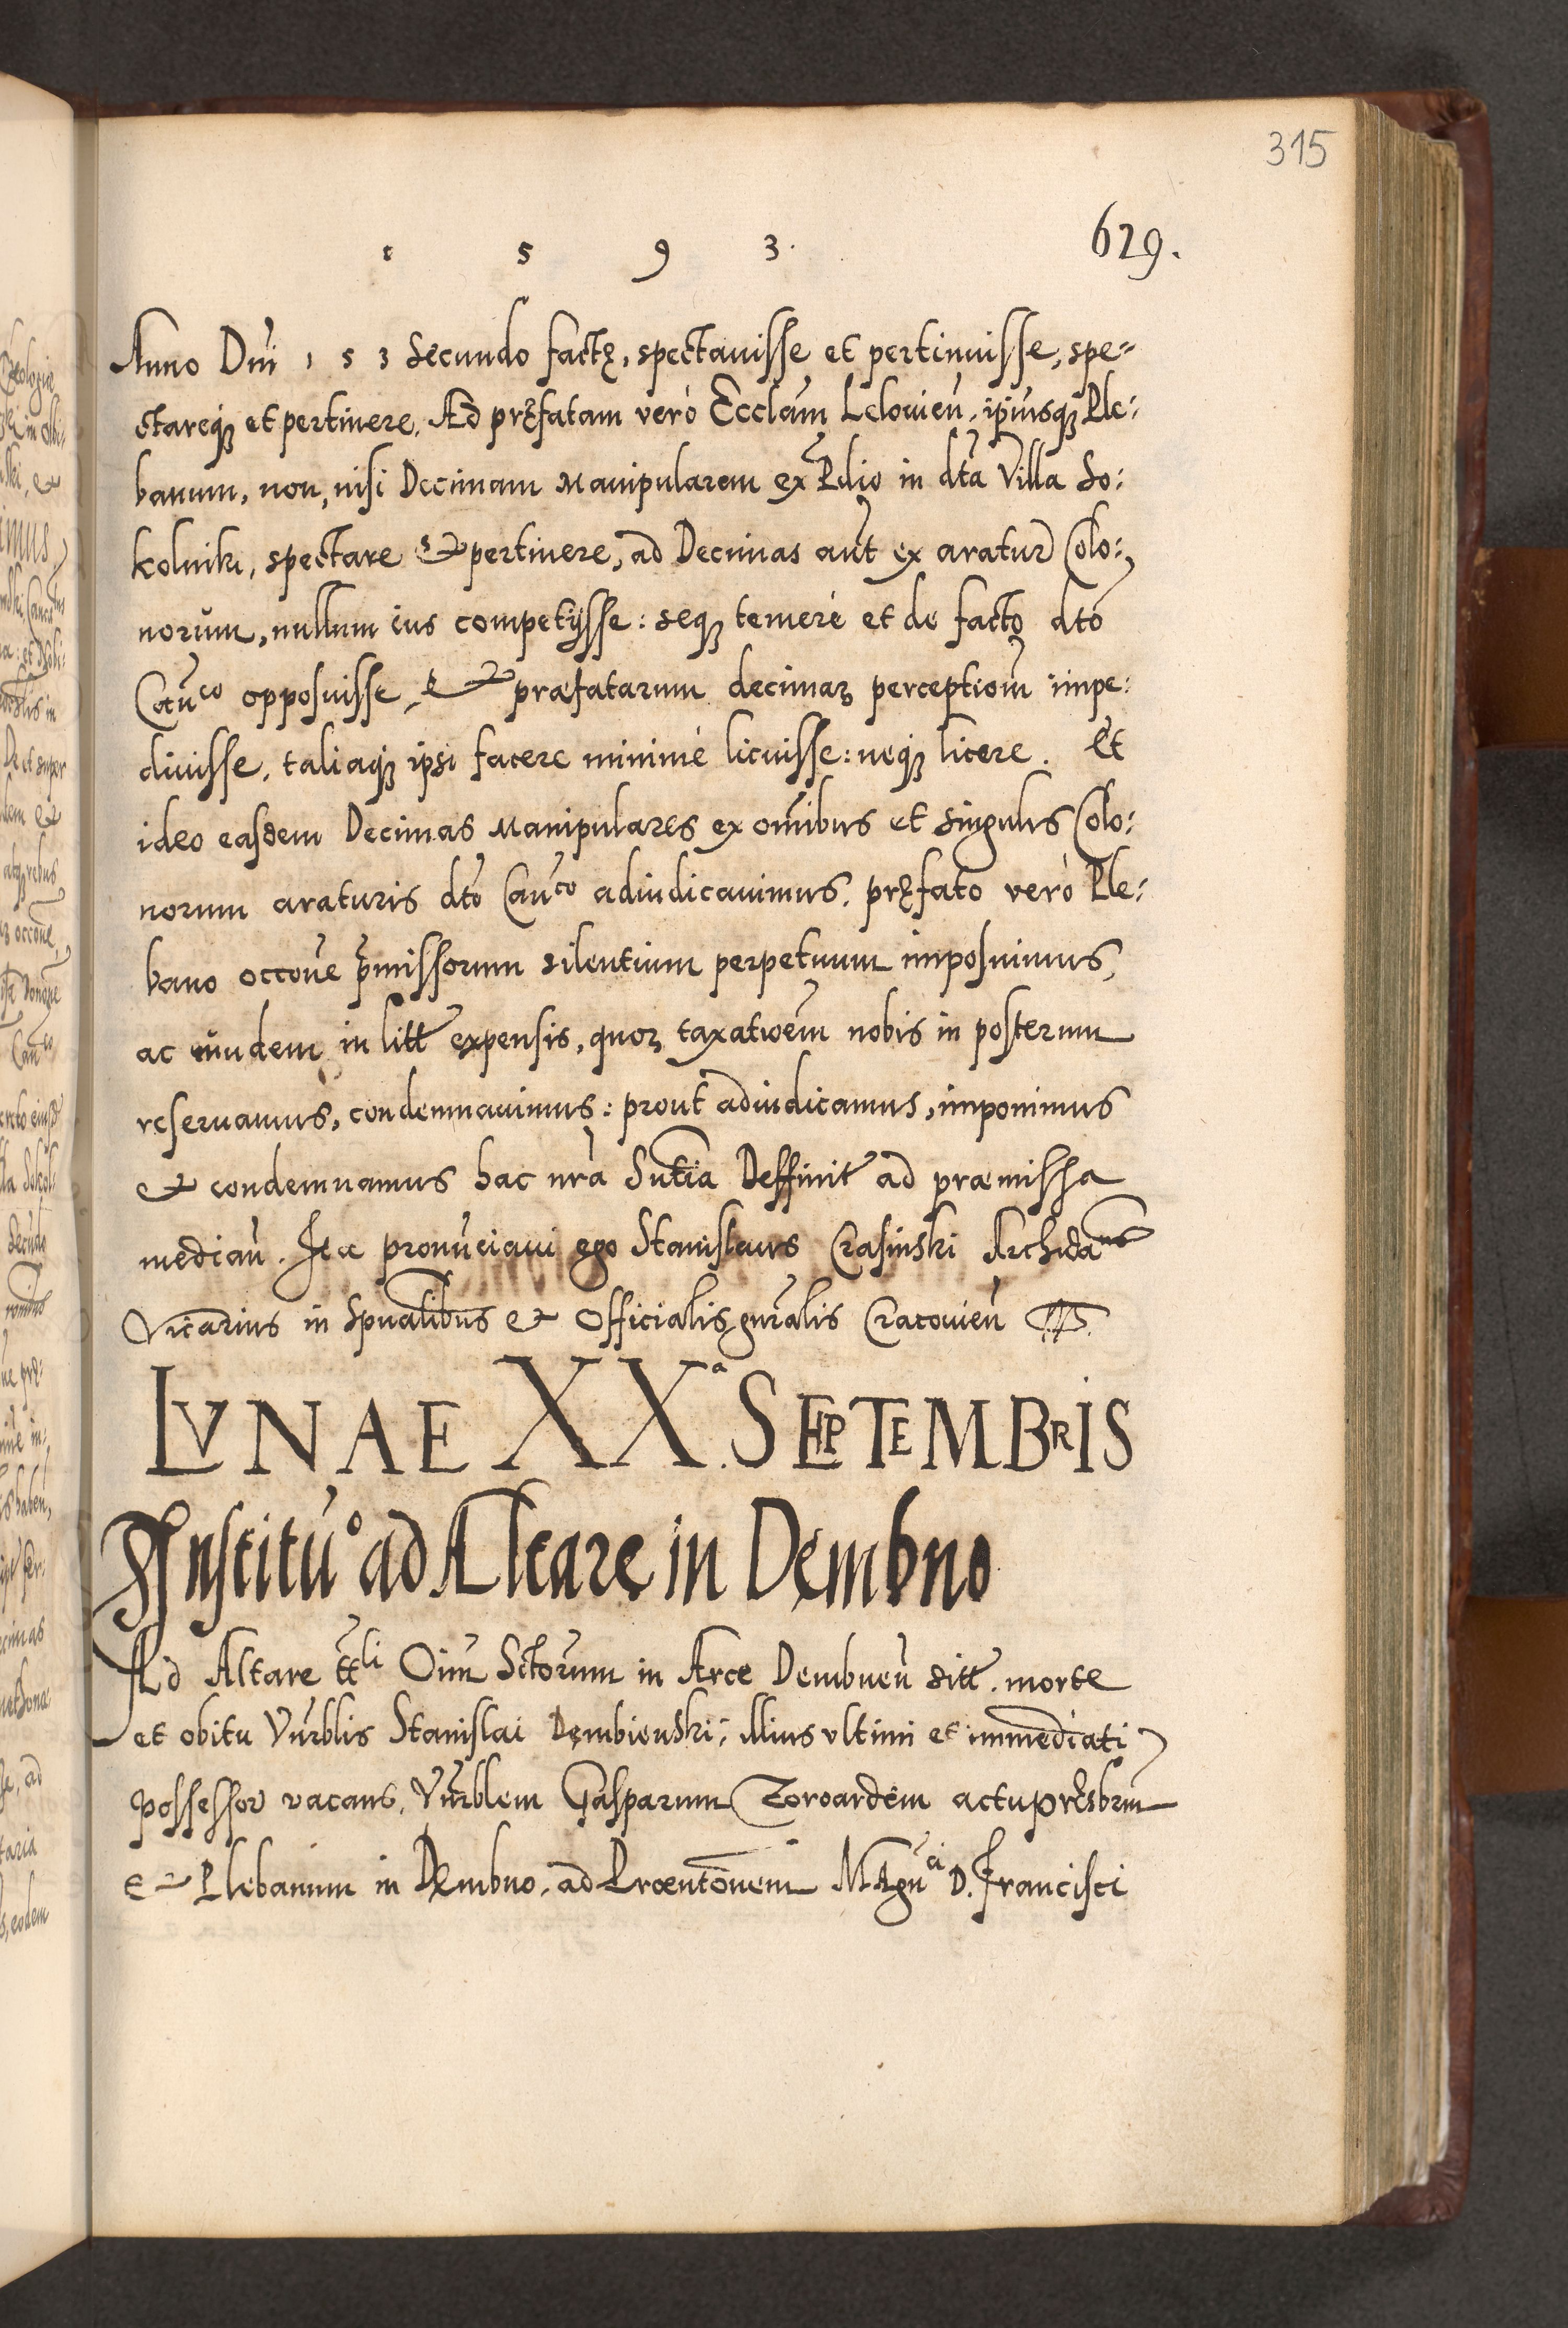 315
1 5 9 3. 629.
Anno Dni 1 5 3 Secundo factę, spectauisse et pertinuisse, spe=
ctareq3 et pertinere. Ad pręfatam verò Ecclam Lelouien, ipiusq3 Ple:
banum, non, nisi Decimam Manipularem ex Pdio in dta Villa So:
kolniki, spectare et pertinere, ad Decimas aut ex aratur Colo:
norum, nullum ius competijsse: seq3 temerè et de facto dto
Canco opposuisse, et praefatarum decimar perceptiom impe:
diuisse, taliaq3 ipsi facere minimè licuisse: neq3 licere. Et
ideo easdem Decimas Manipulares ex omibus et singulis Colo:
norum araturis dto Canco adiudicauimus, pręfato verò Ple:
bano occone pmissorum silentium perpetuum imposuimus,
ac eundem in litt expensis, quor taxatioem nobis in posterum
reseruamus, condemnauimus: prout adiudicamus, imponimus
et condemnamus hac nra Sntia Deffinit ad praemissa
median. Ita pronunciaui ego Stanislaus Crasinski Archidanus
Vicarius in Spualibus et Officialis gnralis Cracouien
LVNAE XXa. SEPTEMBRIS
Institu° ad Altare in Dembno
Ad Altare ttli Oim Sctorum in Arce Dembnen sitt. morte
et obitu Vnrblis Stanislai Dembienski, illius vltimi et immediati
possessor vacans, Vnrblem Gasparum Zoroardem actu presbrm
et Plebanum in Dembno, ad Praentonem Magnci D. Francisci